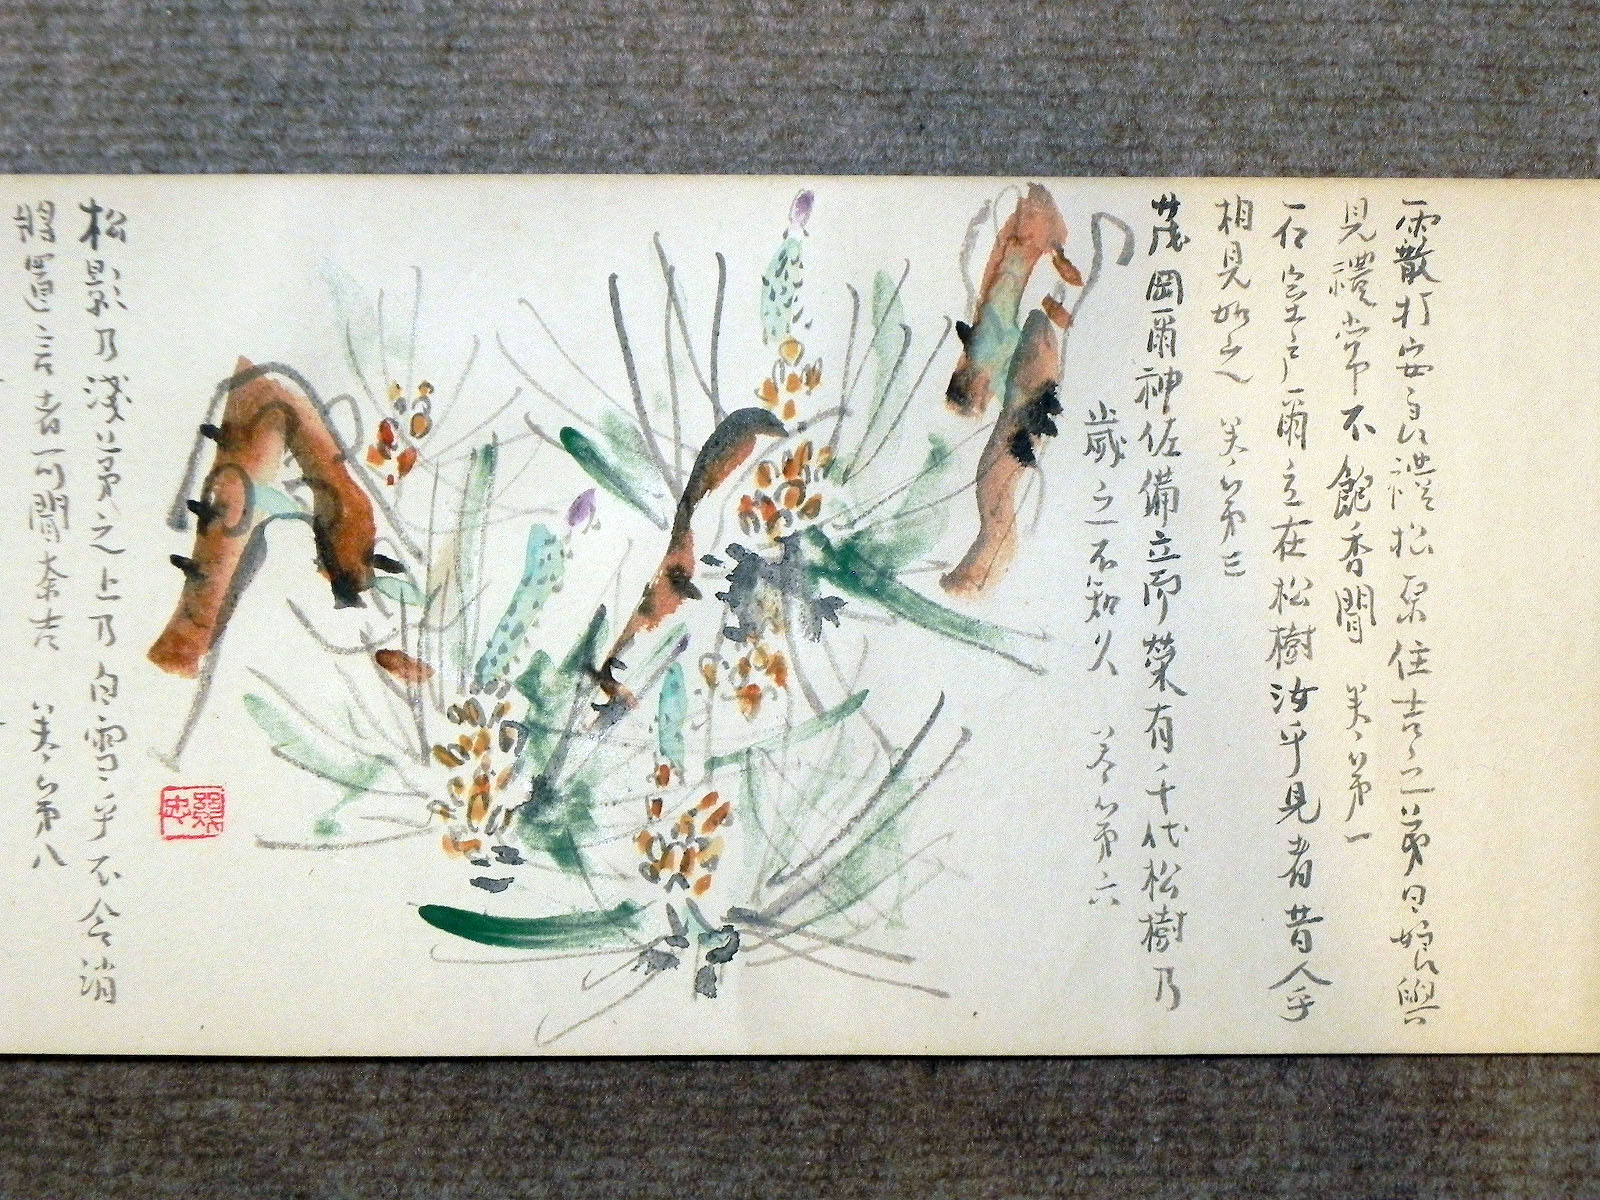 霰打安良禮松原住吉之弟日娘與
見禮常不飽香聞 巻第一
石室戸爾立在松樹汝乎見者昔人乎
相見如之 巻第三
茂岡爾神佐備立而榮有千代松樹乃
歲之不知久 巻第六
松影乃淺茅之上乃白雪乎不令消
將置言者可聞奈吉 巻第八